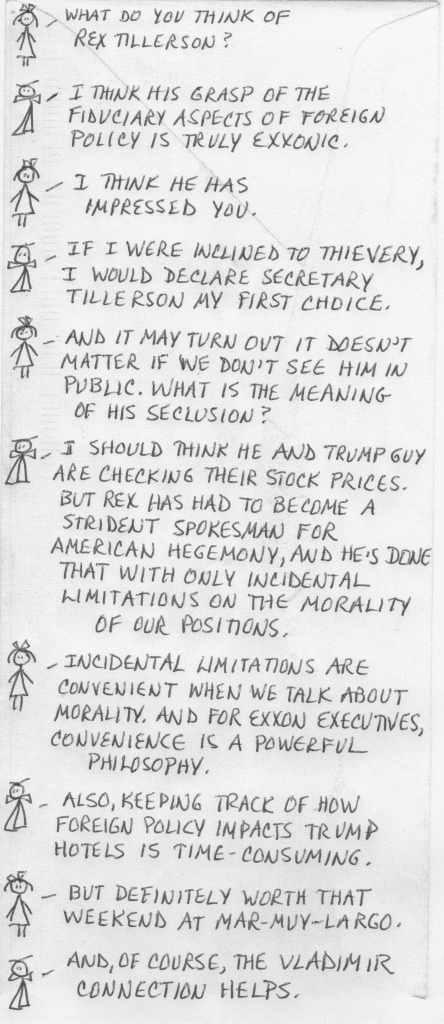 WHAT DO YOU THINK OF
REX TILLERSON?
I THINK HIS GRASP OF THE
FIDUCIARY ASPECTS OF FOREIGN
POLICY IS TRULY EXXONIC.
I THINK HE HAS
IMPRESSED YOU.
IF I WERE INCLINED TO THIEVERY,
I WOULD DECLARE SECRETARY
TILLERSON MY FIRST CHOICE.
AND IT MAY TURN OUT IT DOESN'T
MATTER IF WE DON'T SEE HIM IN
PUBLIC. WHAT IS THE MEANING
OF HIS SECLUSION?
I SHOULD THINK HE AND TRUMP GUY
ARE CHECKING THEIR STOCK PRICES.
BUT REX HAS HAD TO BECOME A
STRIDENT SPOKESMAN FOR
AMERICAN HEGEMONY, AND HE'S DONE
THAT WITH ONLY INCIDENTAL
LIMITATIONS ON THE MORALITY
OF OUR POSITIONS.
INCIDENTAL LIMITATIONS ARE
CONVENIENT WHEN WE TALK ABOUT
MORALITY. AND FOR EXXON EXECUTIVES,
CONVENIENCE IS A POWERFUL
PHILOSOPHY.
ALSO, KEEPING TRACK OF HOW
FOREIGN POLICY IMPACTS TRUMP
HOTELS IS TIME-CONSUMING.
BUT DEFINITELY WORTH THAT
WEEKEND AT MAR-MUY-LARGO.
AND, OF COURSE, THE VLADIMIR
CONNECTION HELPS.